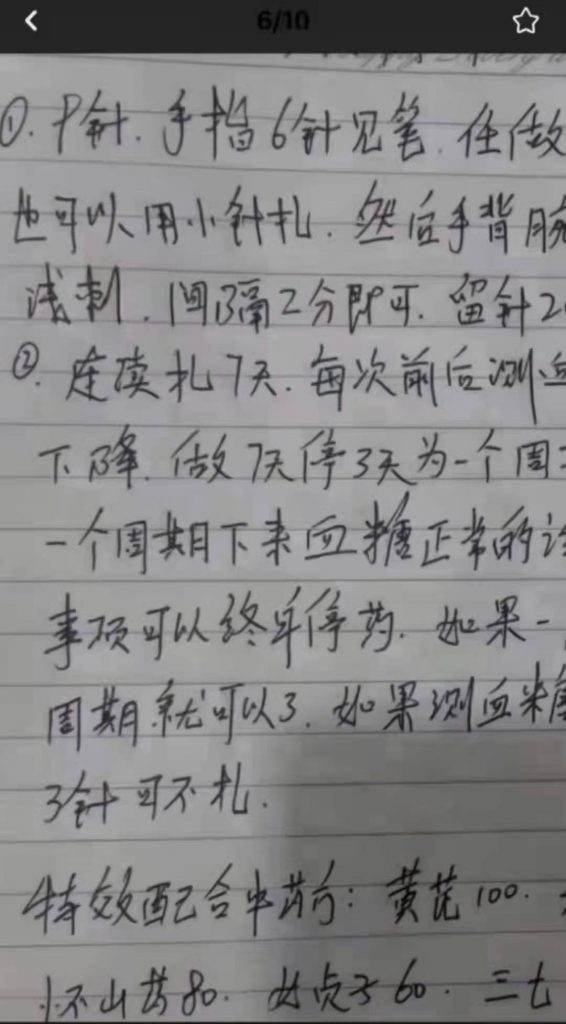 6/10
①. P针. 手指6针见笔. 任做
也可以用小针扎. 然后手背腕
浅刺. 间隔2分即可. 留针2
②. 连续扎7天. 每次前后测血
下降. 做7天停3天为一个周
一个周期下来血糖正常的
事项可以终身停药. 如果一
周期就可以了. 如果测血糖
3针可不扎.
特效配合中药方: 黄芪100.
怀山药80. 女贞子60. 三七